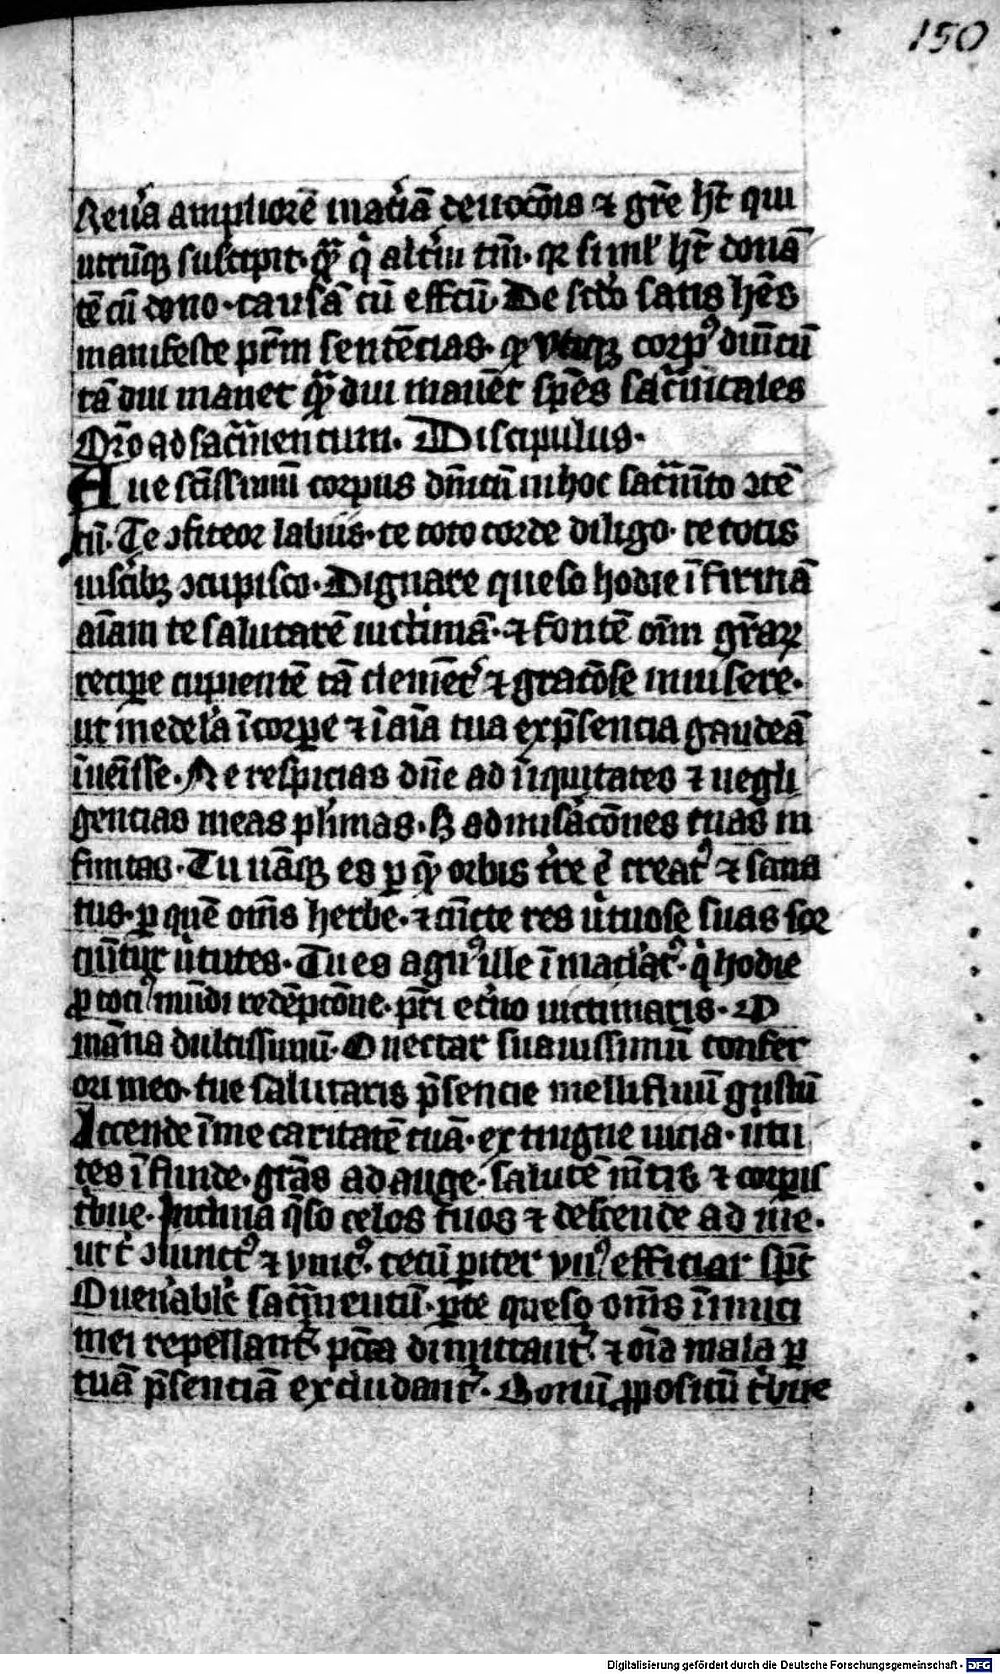 150
Reu'a ampliorē mat'iā deuocōis ⁊ gr̄e hꝫ qui
utrūqꝫ suscipit. qͣꝫ qͥ alt'iu tm̄. qꝛ siml' hꝫ donā
tē cū dono. causā cū effcū. De scd'o satis hēs
manifeste pr̄m sentēcias. qꝫ utiqꝫ corpꝰ diuīcū
tā diu manet qͣꝫ diu manēt spēs sac̄mētales
Or̄o ad sac̄mentum. Discipulus.
Aue sc̄issimū corpus dn̄icū in hoc sac̄mēto ꝯtē
tū. Te ꝯfiteor labiis. te toto corde diligo. te totis
uiscibꝫ ꝯcupisco. Dignare queso hodie īfirmā
aīam te salutarē uictimā. ⁊ fontē om̄ gr̄aꝝ
recipe cupientē tā clemēt' ⁊ graciōse inuisere.
ut medela ī corpe ⁊ ī aīa tua ex p̄sencia gaudeā
īuēisse. Ne respicias dn̄e ad īiquitates ⁊ negli
gencias meas pl'imas. sꝫ ad mis'acōnes tuas in
finitas. Tu nāqꝫ es p quē orbis t're ē creatꝰ ⁊ sana
tus. p quē om̄s herbe. ⁊ cūcte res u'tuose suas sor
ciūtur u'tutes. Tu es agnꝰ ille īmaclatꝰ. qͥ hodie
p tociꝰ mūdi redēpcōne. pr̄i et'no uictimaris. O
māna dulcissimū. O nectar suauissimū confer
ori meo. tue salutaris p̄sencie mellifluū gustū
Accende ī me caritatē tuā. extingue uicia. u'tu
tes īfunde. gr̄as adauge. salutē mētis ⁊ corpis
t'bue. Inclina q̄so celos tuos ⁊ descende ad me.
ut t' ꝯiunctꝰ ⁊ unitꝰ. tecū piter unꝰ efficiar spc̄
O uen'abile sac̄mentū. p te queso om̄s īimici
mei repellant'. pcc̄a dimittant'. ⁊ oīa mala p
tuā p̄senciā excludant'. Bonū ꝓpositū t'bue
Digitalisierung gefördert durch die Deutsche Forschungsgemeinschaft - DFG